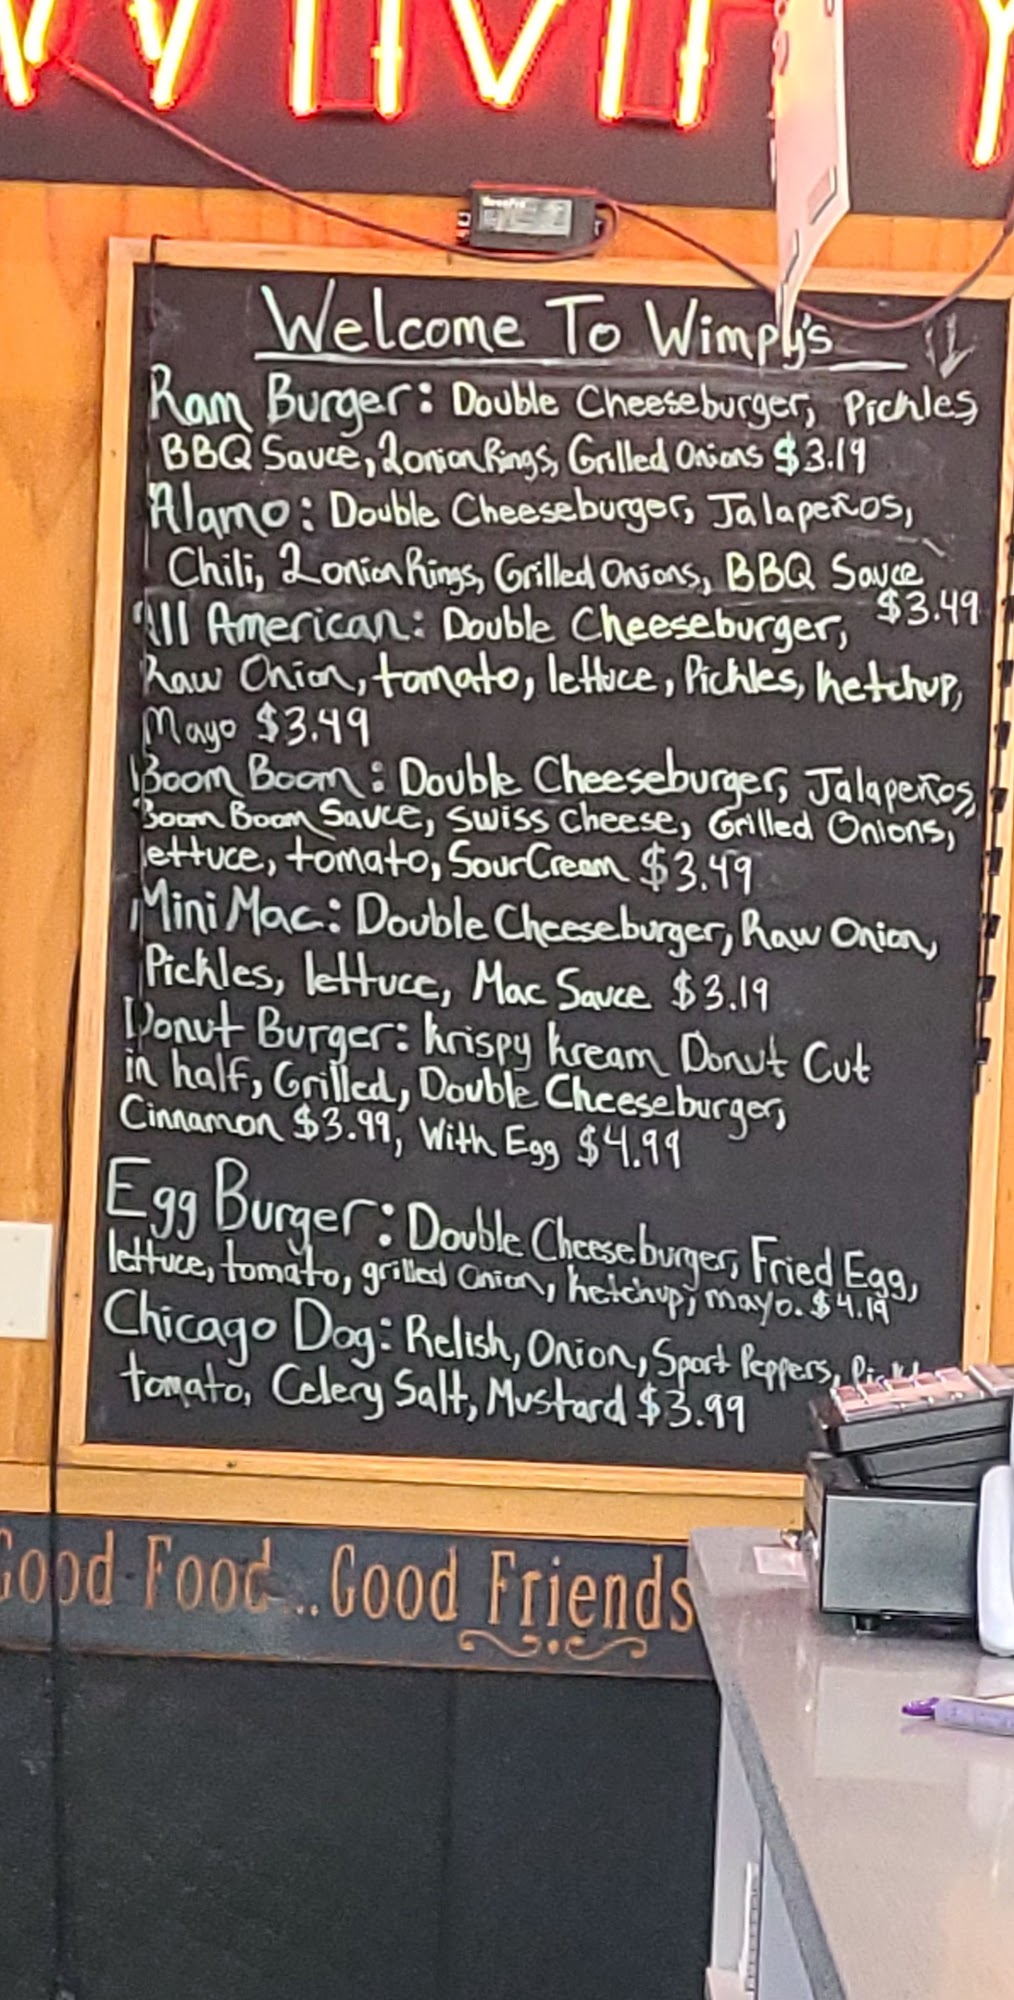 WIMPY
Welcome To Wimpy's
Ram Burger: Double Cheeseburger, Pickles
BBQ Sauce, 2 onion Rings, Grilled Onions $3.19
Alamo: Double Cheeseburger, Jalapeños,
Chili, 2 onion Rings, Grilled Onions, BBQ Sauce
$3.49
All American: Double Cheeseburger,
Raw Onion, tomato, lettuce, Pickles, ketchup,
Mayo $3.49
Boom Boom: Double Cheeseburger, Jalapeños,
Boom Boom Sauce, Swiss Cheese, Grilled Onions,
lettuce, tomato, Sour Cream $3.49
Mini Mac: Double Cheeseburger, Raw Onion,
Pickles, lettuce, Mac Sauce $3.19
Donut Burger: Krispy Kream Donut Cut
in half, Grilled, Double Cheeseburger,
Cinnamon $3.99, With Egg $4.99
Egg Burger: Double Cheeseburger, Fried Egg,
lettuce, tomato, grilled Onion, ketchup, mayo. $4.19
Chicago Dog: Relish, Onion, Sport Peppers,
tomato, Celery Salt, Mustard $3.99
Good Food... Good Friends